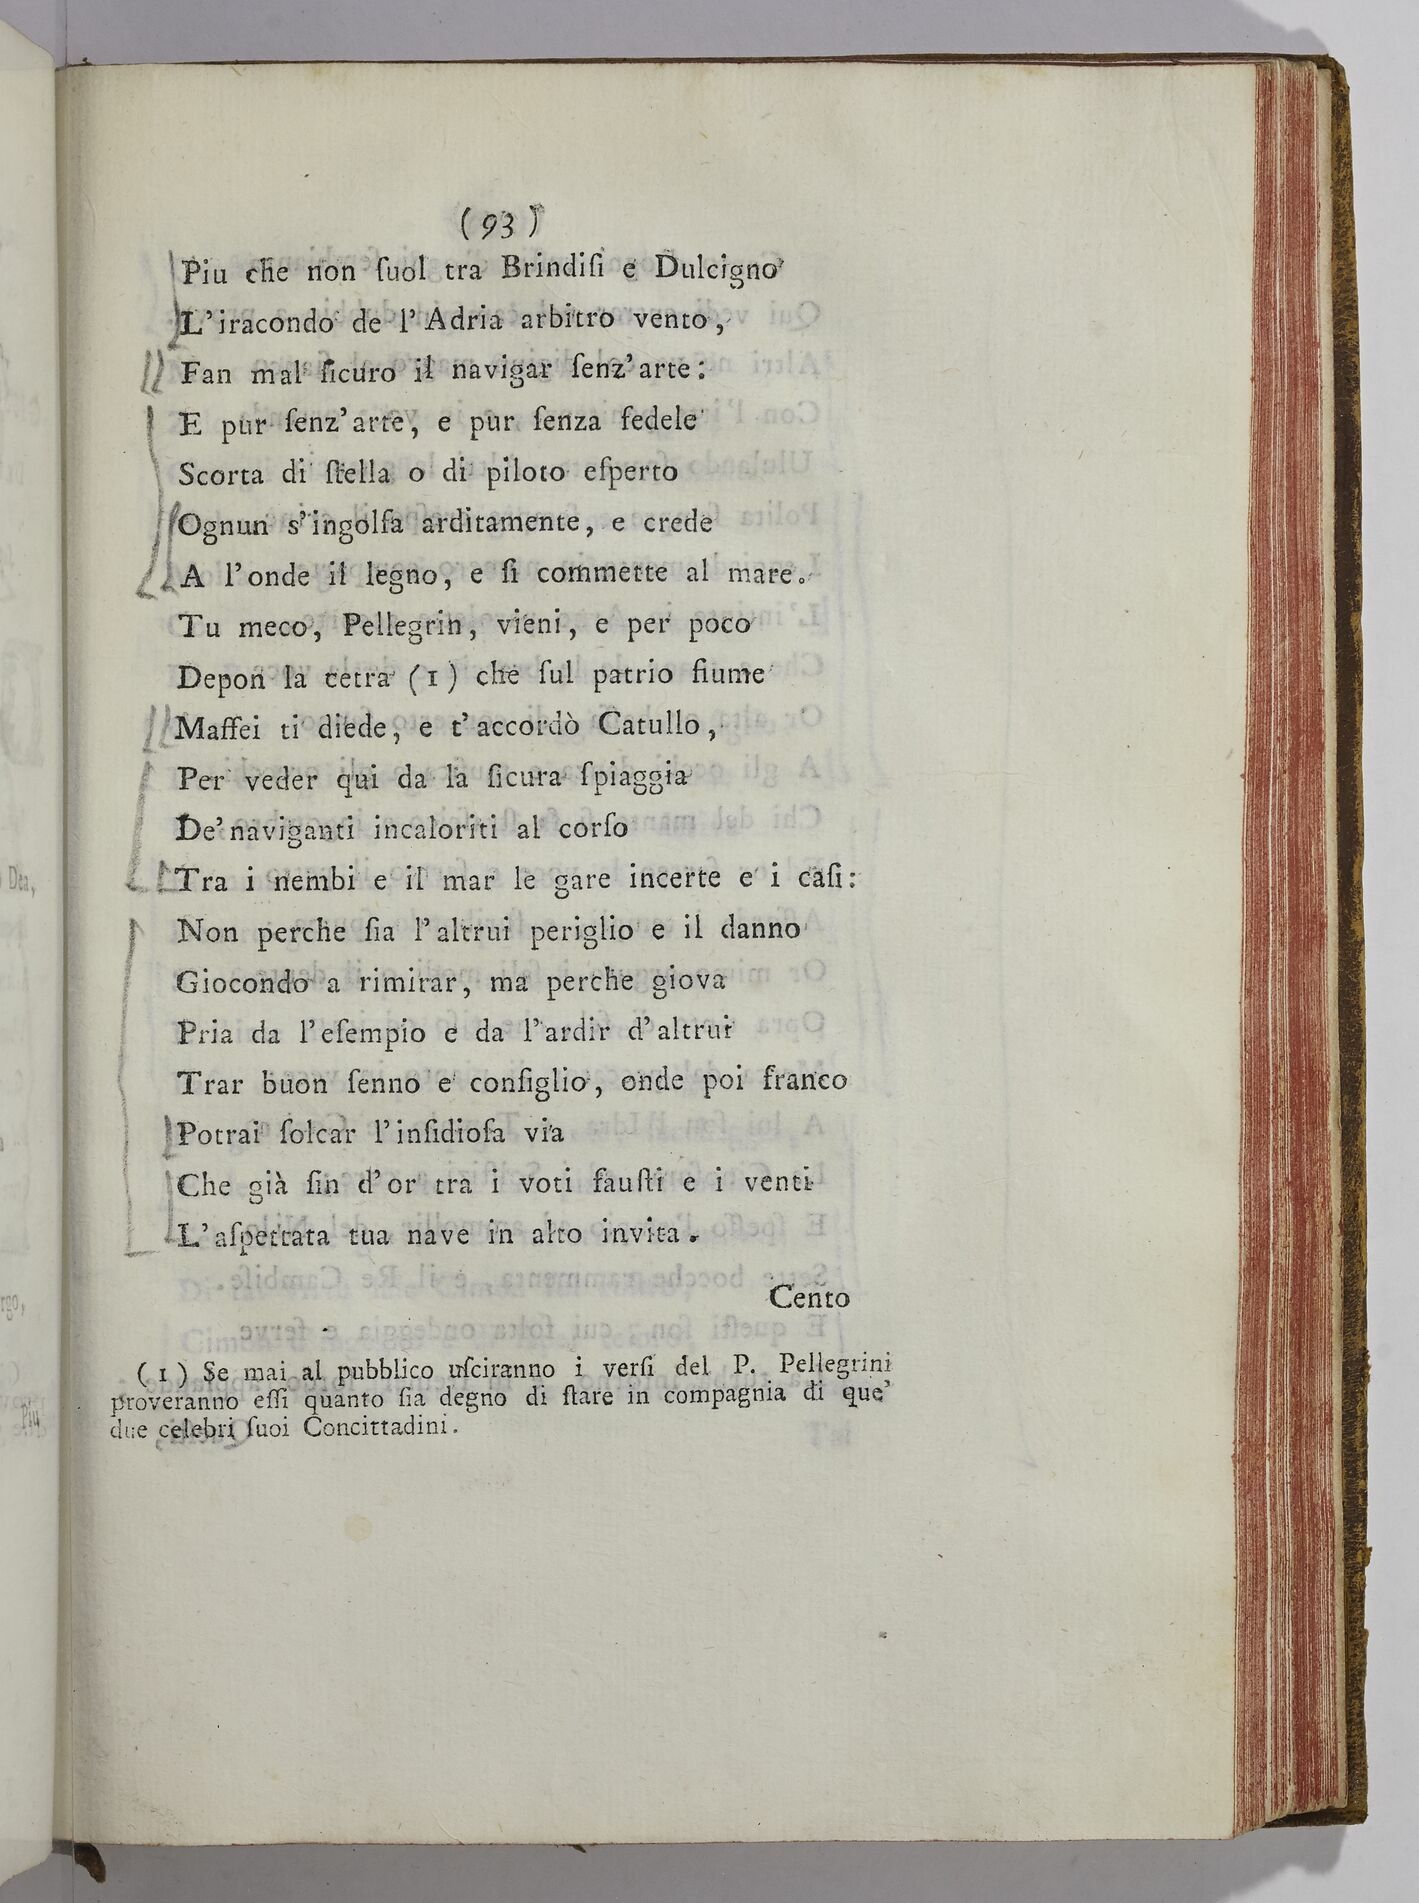 (93)
Piu che non ſuol tra Brindiſi e Dulcigno
L'iracondo de l'Adria arbitro vento,
Fan mal ſicuro il navigar ſenz'arte:
E pur ſenz'arte, e pur ſenza fedele
Scorta di ſtella o di piloto eſperto
Ognun s'ingolfa arditamente, e crede
A l'onde il legno, e ſi commette al mare.
Tu meco, Pellegrin, vieni, e per poco
Depon la cetra (1) che ſul patrio fiume
Maffei ti diede, e t'accordò Catullo,
Per veder qui da la ſicura ſpiaggia
De'naviganti incaloriti al corſo
Tra i nembi e il mar le gare incerte e i caſi:
Non perche ſia l'altrui periglio e il danno
Giocondo a rimirar, ma perche giova
Pria da l'eſempio e da l'ardir d'altrui
Trar buon ſenno e conſiglio, onde poi franco
Potrai ſolcar l'inſidioſa via
Che già fin d'or tra i voti fauſti e i venti
L'aſpettata tua nave in alto invita.
Cento
(1) Se mai al pubblico uſciranno i verſi del P. Pellegrini
proveranno eſſi quanto ſia degno di ſtare in compagnia di que'
due celebri ſuoi Concittadini.